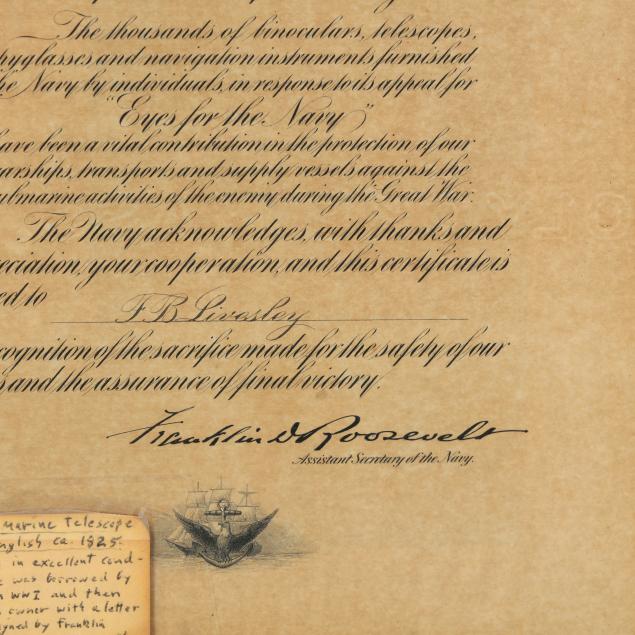 The thousands of binoculars, telescopes,
pyglasses and navigation instruments furnished
he Navy by individuals, in response to its appeal for
"Eyes for the Navy"
ave been a vital contribution in the protection of our
arships, transports and supply vessels against the
ubmarine activities of the enemy during the Great War.
The Navy acknowledges, with thanks and
eciation, your cooperation, and this certificate is
ed to
F B Livesley
cognition of the sacrifice made for the safety of our
s and the assurance of final victory.
Franklin D Roosevelt
Assistant Secretary of the Navy.
Marine Telescope
nglish ca. 1825.
in excellent cond-
was borrowed by
n WWI and then
owner with a letter
gned by Franklin